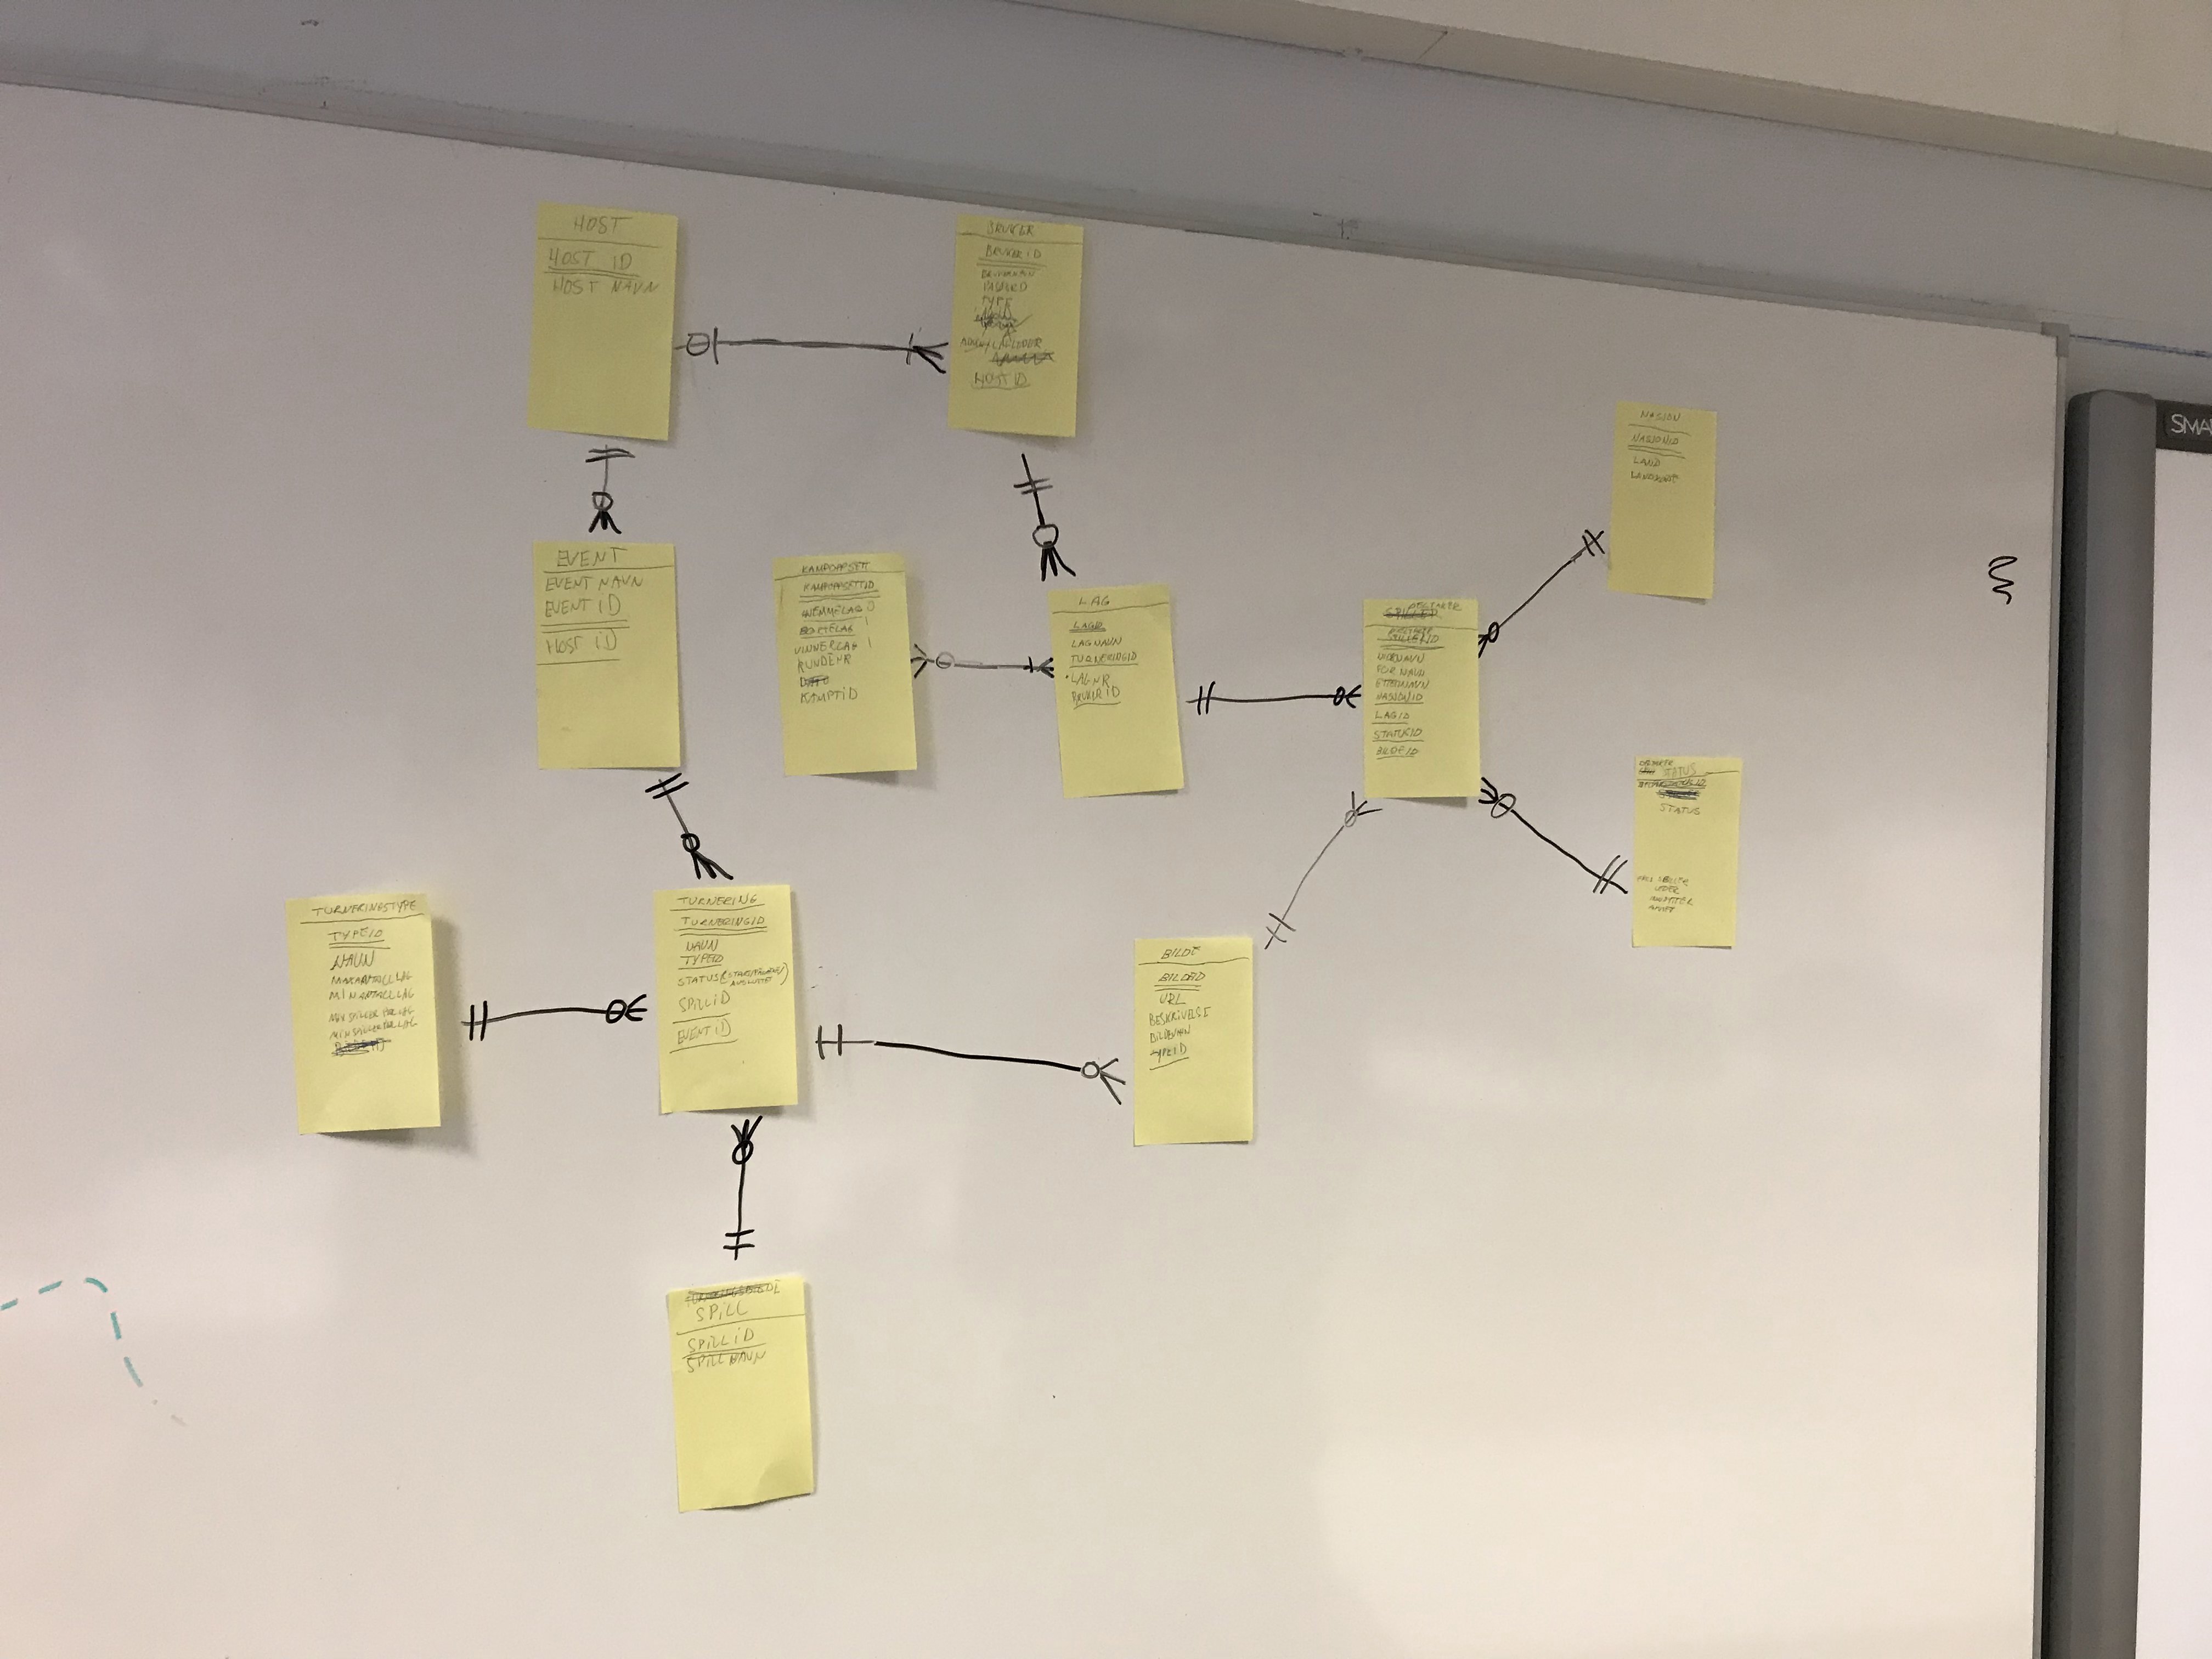 HOST
HOST ID
HOST NAVN
BRUKER
BRUKERID
BRUKERNAVN
PASSORD
TYPE
LAGLEDER
HOSTID
SMA
NASJON
NASJONID
LAND
EVENT
EVENT NAVN
EVENT ID
HOST ID
KAMPOPPSETT
KAMPOPPSETTID
HJEMMELAG
BORTELAG
VINNERLAG
RUNDENR
KAMPTID
LAG
LAGID
LAGNAVN
TURNERINGID
LAGNR
BRUKERID
DELTAKER
FORNAVN
ETTERNAVN
NASJONID
LAGID
STATUSID
BILDEID
DELTAKER
STATUS
STATUS
LEDER
TURNERINGSTYPE
TYPEID
NAVN
MAXANTALLLAG
MINANTALLLAG
MAXSPILLERPERLAG
MINSPILLERPERLAG
TURNERING
TURNERINGID
NAVN
TYPEID
STATUS
SPILLID
EVENTID
BILDE
BILDEID
URL
BESKRIVELSE
BILDENAVN
TYPEID
SPILL
SPILLID
SPILLNAVN